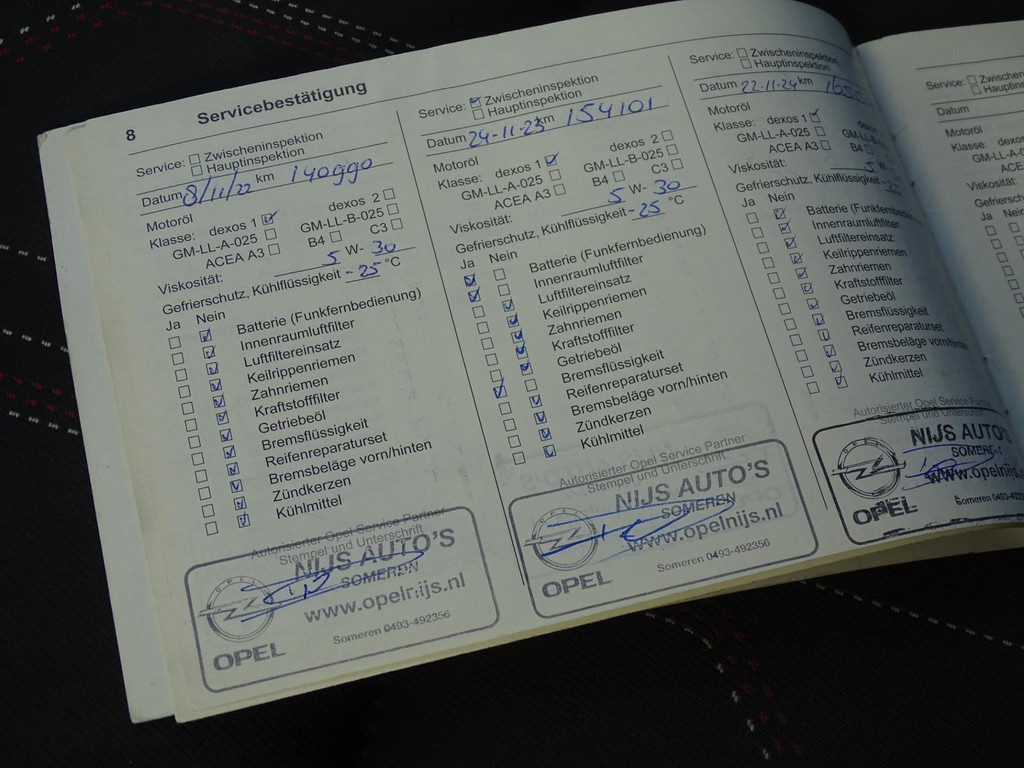 8
Servicebestätigung
Service: Zwischeninspektion
Hauptinspektion
Datum 8/11/22 km 140990
Motoröl
Klasse: dexos 1 dexos 2
GM-LL-A-025 GM-LL-B-025
ACEA A3 B4 C3
Viskosität: 5 W- 30
Gefrierschutz, Kühlflüssigkeit -25 °C
Ja Nein
Batterie (Funkfernbedienung)
Innenraumluftfilter
Luftfiltereinsatz
Keilrippenriemen
Zahnriemen
Kraftstofffilter
Getriebeöl
Bremsflüssigkeit
Reifenreparaturset
Bremsbeläge vorn/hinten
Zündkerzen
Kühlmittel
Autorisierter Opel Service Partner
Stempel und Unterschrift
NIJS AUTO'S
SOMEREN
www.opelnijs.nl
Someren 0493-492356
OPEL
Service: Zwischeninspektion
Hauptinspektion
Datum 24-11-23 km 154101
Motoröl
Klasse: dexos 1 dexos 2
GM-LL-A-025 GM-LL-B-025
ACEA A3 B4 C3
Viskosität: 5 W- 30
Gefrierschutz, Kühlflüssigkeit -25 °C
Ja Nein
Batterie (Funkfernbedienung)
Innenraumluftfilter
Luftfiltereinsatz
Keilrippenriemen
Zahnriemen
Kraftstofffilter
Getriebeöl
Bremsflüssigkeit
Reifenreparaturset
Bremsbeläge vorn/hinten
Zündkerzen
Kühlmittel
Autorisierter Opel Service Partner
Stempel und Unterschrift
NIJS AUTO'S
SOMEREN
www.opelnijs.nl
Someren 0493-492356
OPEL
Service: Zwischeninspektion
Hauptinspektion
Datum 22-11-24 km
Motoröl
Klasse: dexos 1 dexos
GM-LL-A-025 GM-LL-B
ACEA A3 B4
Viskosität: 5 W-
Gefrierschutz, Kühlflüssigkeit
Ja Nein
Batterie (Funkfernbed
Innenraumluftfilter
Luftfiltereinsatz
Keilrippenriemen
Zahnriemen
Kraftstofffilter
Getriebeöl
Bremsflüssigkeit
Reifenreparaturset
Bremsbeläge vorn/hinten
Zündkerzen
Kühlmittel
Autorisierter Opel Service
Stempel und Unterschrift
NIJS AUTO'S
SOMEREN
www.opelnij
Someren 0493-4923
OPEL
Service: Zwischen
Hauptinsp
Datum
Motoröl
Klasse: dexos
GM-LL-A-0
ACEA A
Viskosität:
Gefriersch
Ja Nein